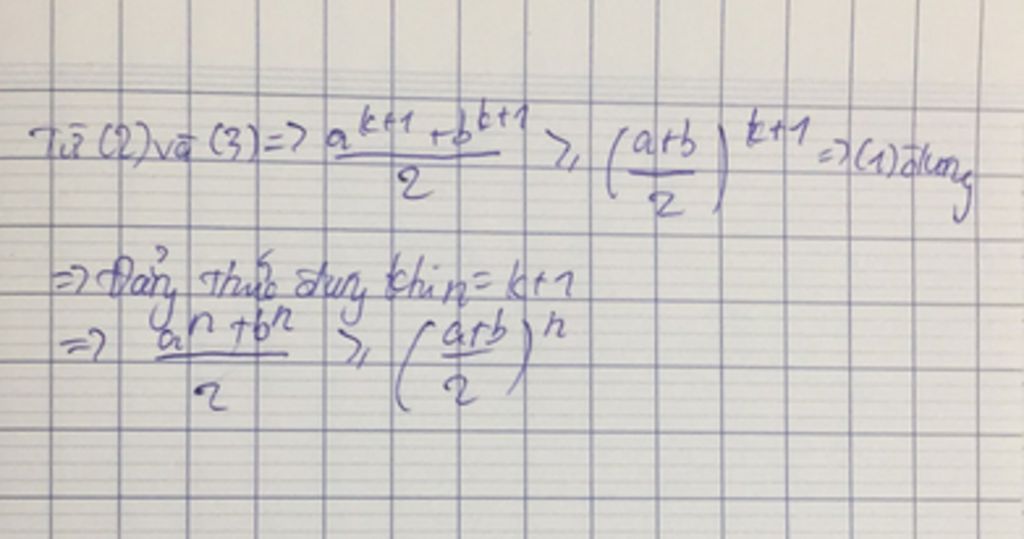 Từ (2) và (3) => \frac{a^{k+1} + b^{k+1}}{2} ≥ \left(\frac{a+b}{2}\right)^{k+1} => (1) đúng
=> Đẳng thức đúng khi n = k+1
=> \frac{a^n + b^n}{2} ≥ \left(\frac{a+b}{2}\right)^n